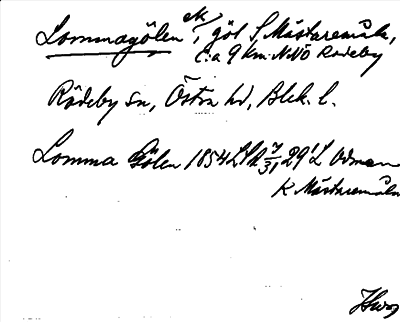 Lommagölen ek T, göl S Mästaremåla,
c:a 9 km NNÖ Rödeby
Rödeby sn, Östra hd, Blek. l.
Lomma Gölen 1854 29' L Ödman
K Mästaremåla